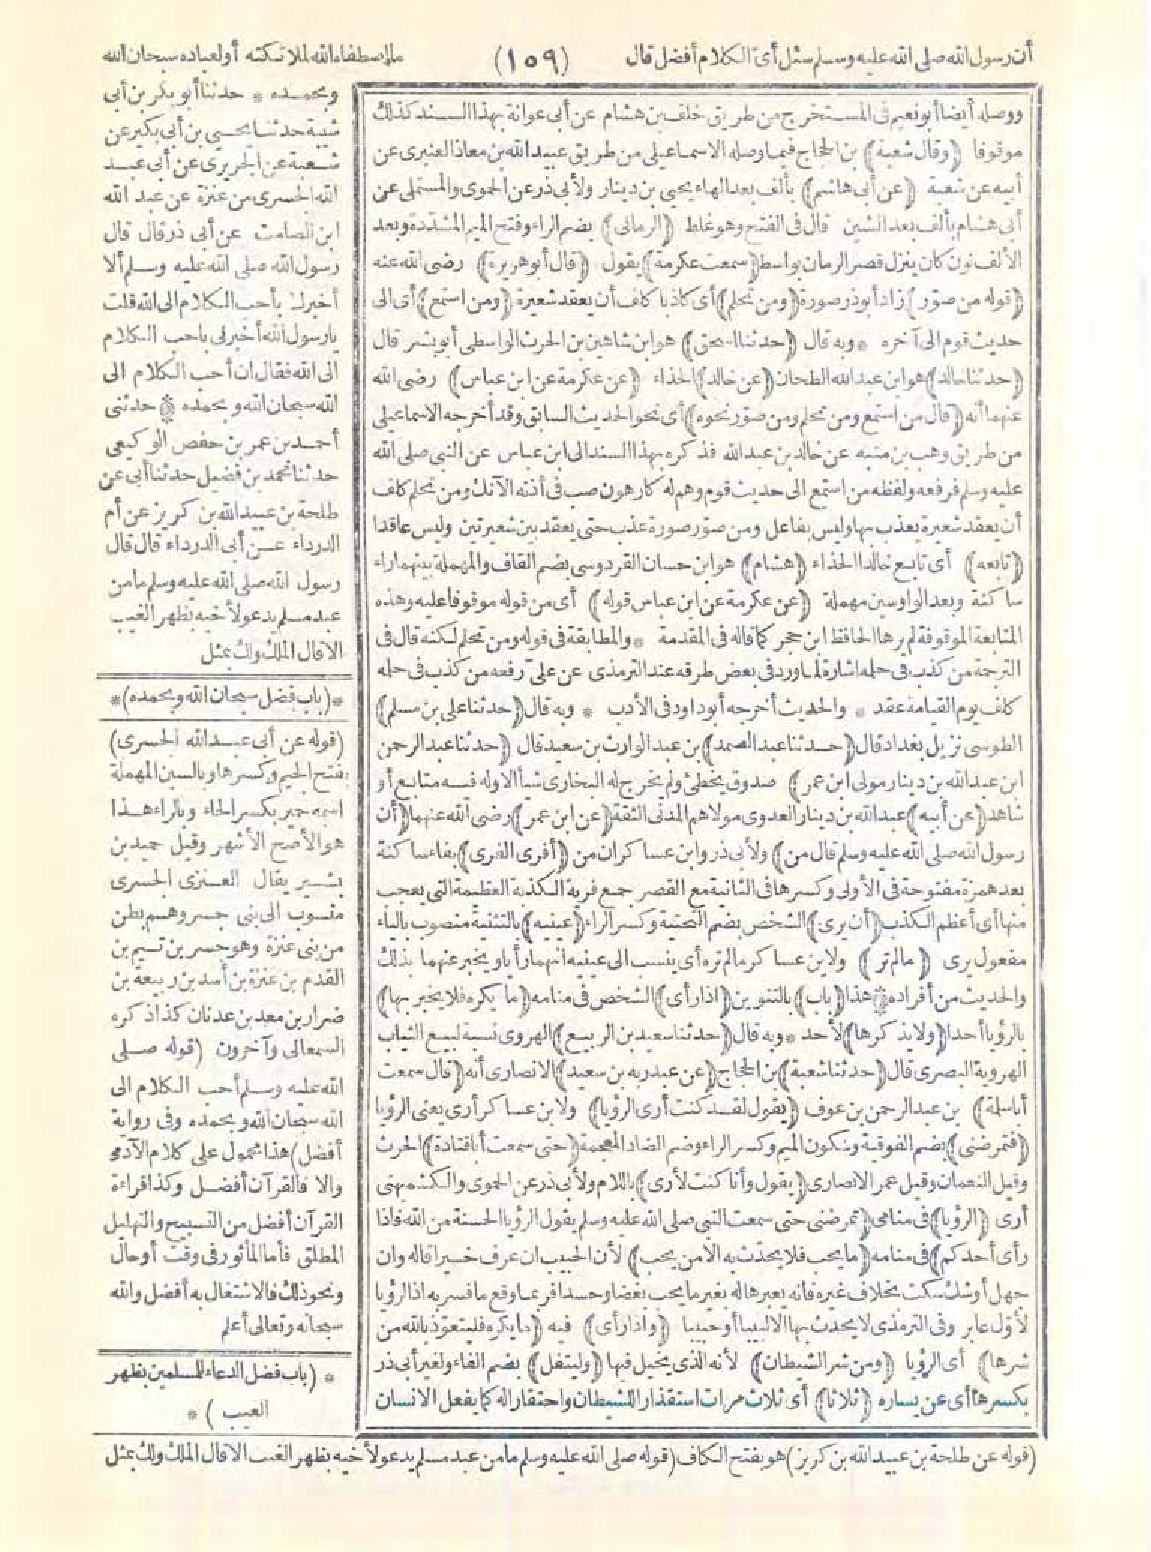 أن رسول الله صلى الله عليه وسلم سئل أى الكلام أفضل قال (١٥٩) ما اصطفاه الله لملائكته أو لعباده سبحان الله
وبحمده * حدثنا أبو بكر بن أبى
شيبة حدثنا يحيى بن أبي بكير عن
شعبة عن الجريرى عن أبى عبد
الله الجسرى من عنزة عن عبد الله
ابن الصامت عن أبى ذر قال قال
رسول الله صلى الله عليه وسلم ألا
أخبرك بأحب الكلام الى الله قلت
يارسول الله أخبرنى بأحب الكلام
الى الله فقال ان أحب الكلام الى
الله سبحان الله وبحمده * حدثنى
أحمد بن عمر بن حفص الوكيعى
حدثنا محمد بن فضيل حدثنا أبى عن
طلحة بن عبيد الله بن كريز عن أم
الدرداء عن أبى الدرداء قال قال
رسول الله صلى الله عليه وسلم ما من
عبد مسلم يدعو لأخيه بظهر الغيب
الا قال الملك ولك بمثل
ووصله أيضا أبو نعيم فى المستخرج من طريق خلف بن هشام عن أبى عوانة بهذا السند كذلك
موقوفا (وقال شعبة) بن الحجاج فيما وصله الاسماعيلى من طريق عبيد الله بن معاذ العنبرى عن
أبيه عن شعبة (عن أبى هاشم) بألف بعد الهاء يحيى بن دينار ولأبى ذر عن الحموى والمستملى عن
أبى هشام بألف بعد الشين قال فى الفتح وهو غلط (الرمانى) بضم الراء وفتح الميم المشددة وبعد
الألف نون كان ينزل قصر الرمان بواسط (سمعت عكرمة) يقول (قال أبو هريرة) رضى الله عنه
(قوله من صوّر) زاد أبو ذر صورة (ومن تحلم) أى كاذبا كلف أن يعقد شعيرة (ومن استمع) أى الى
حديث قوم الى آخره * وبه قال (حدثنا اسحق) هو ابن شاهين بن الحرث الواسطى أبو بشر قال
(حدثنا خالد) هو ابن عبد الله الطحان (عن خالد) الحذاء (عن عكرمة عن ابن عباس) رضى الله
عنهما أنه (قال من استمع ومن تحلم ومن صوّر نحوه) أى نحو الحديث السابق وقد أخرجه الاسماعيلى
من طريق وهب بن منبه عن خالد بن عبد الله فذكره بهذا السند الى ابن عباس عن النبى صلى الله
عليه وسلم فرفعه ولفظه من استمع الى حديث قوم وهم له كارهون صب فى أذنه الآنك ومن تحلم كلف
أن يعقد شعيرة يعذب بها وليس بفاعل ومن صوّر صورة عذب حتى يعقد بين شعيرتين وليس عاقدا
(تابعه) أى تابع خالدا الحذاء (هشام) هو ابن حسان القردوسى بضم القاف والمهملة بينهما راء
ساكنة وبعد الواو سين مهملة (عن عكرمة عن ابن عباس قوله) أى من قوله موقوفا عليه وهذه
المتابعة الموقوفة لم يرها الحافظ ابن حجر كما قاله فى المقدمة * والمطابقة فى قوله ومن تحلم لكنه قال فى
الترجمة من كذب فى حلمه اشارة لما ورد فى بعض طرقه عند الترمذى عن علىّ رفعه من كذب فى حلمه
كلف يوم القيامة عقد * والحديث أخرجه أبو داود فى الأدب * وبه قال (حدثنا على بن مسلم)
الطوسى نزيل بغداد قال (حدثنا عبد الصمد) بن عبد الوارث بن سعيد قال (حدثنا عبد الرحمن
ابن عبد الله بن دينار مولى ابن عمر) صدوق يخطئ ولم يخرج له البخارى شيأ الا وله فيه متابع أو
شاهد (عن أبيه) عبد الله بن دينار العدوى مولاهم المدنى الثقة (عن ابن عمر) رضى الله عنهما (أن
رسول الله صلى الله عليه وسلم قال من) ولأبى ذر وابن عساكر ان من (أفرى الفرى) بفاء ساكنة
بعد همزة مفتوحة فى الأولى وكسرها فى الثانية مع القصر جمع فرية الكذبة العظيمة التى يعجب
منها أى أعظم الكذب (أن يرى) الشخص بضم التحتية وكسر الراء (عينيه) بالتثنية منصوب بالياء
مفعول يرى (ما لم تر) ولابن عساكر ما لم تره أى ينسب الى عينيه انهما رأيا ويخبر عنهما بذلك
والحديث من أفراده * هذا (باب) بالتنوين (اذا رأى) الشخص فى منامه (ما يكره فلا يخبر بها)
بالرؤيا أحدا (ولا يذكرها) لأحد * وبه قال (حدثنا سعيد بن الربيع) الهروى نسبة لبيع الثياب
الهروية البصرى قال (حدثنا شعبة) بن الحجاج (عن عبد ربه بن سعيد) الانصارى أنه (قال سمعت
أبا سلمة) بن عبد الرحمن بن عوف (يقول لقد كنت أرى الرؤيا) ولابن عساكر أرى يعنى الرؤيا
(فتمرضنى) بضم الفوقية وسكون الميم وكسر الراء وضم الضاد المعجمة (حتى سمعت أبا قتادة) الحرث
وقيل النعمان وقيل عمر الانصارى (يقول وأنا كنت لأرى) باللام ولأبى ذر عن الحموى والكشميهنى
أرى (الرؤيا) فى منامى (تمرضنى حتى سمعت النبى صلى الله عليه وسلم يقول الرؤيا الحسنة من الله فاذا
رأى أحدكم) فى منامه (ما يحب فلا يحدّث به الا من يحب) لأن الحبيب ان عرف خيرا قاله وان
جهل أو شك سكت بخلاف غيره فانه يعبرها له بغير ما يحب بغضا وحسدا فربما وقع ما فسر به اذ الرؤيا
لأوّل عابر وفى الترمذى لا يحدث بها الا لبيبا أو حبيبا (واذا رأى) فيه (ما يكره فليتعوّذ بالله من
شرها) أى الرؤيا (ومن شر الشيطان) لأنه الذى يخيل فيها (وليتفل) بضم الفاء ولغير أبى ذر
بكسرها أى عن يساره (ثلاثا) أى ثلاث مرات استقذارا للشيطان واحتقارا له كما يفعل الانسان
*(باب فضل سبحان الله وبحمده)*
(قوله عن أبى عبد الله الجسرى)
بفتح الجيم وكسرها وبالسين المهملة
اسمه حمير بكسر الحاء وبالراء هذا
هو الأصح الأشهر وقيل حميد بن
بشير يقال العنزى الجسرى
منسوب الى بنى جسر وهم بطن
من بنى عنزة وهو جسر بن تيم بن
القدم بن عنزة بن أسد بن ربيعة بن
ضرار بن معد بن عدنان كذا ذكره
السمعانى وآخرون (قوله صلى
الله عليه وسلم أحب الكلام الى
الله سبحان الله وبحمده وفى رواية
أفضل) هذا محمول على كلام الآدمى
والا فالقرآن أفضل وكذا قراءة
القرآن أفضل من التسبيح والتهليل
المطلق فأما المأثور فى وقت أو حال
ونحو ذلك فالاشتغال به أفضل والله
سبحانه وتعالى أعلم
*(باب فضل الدعاء للمسلمين بظهر
الغيب)*
(قوله عن طلحة بن عبيد الله بن كريز) هو بفتح الكاف (قوله صلى الله عليه وسلم ما من عبد مسلم يدعو لأخيه بظهر الغيب الا قال الملك ولك بمثل